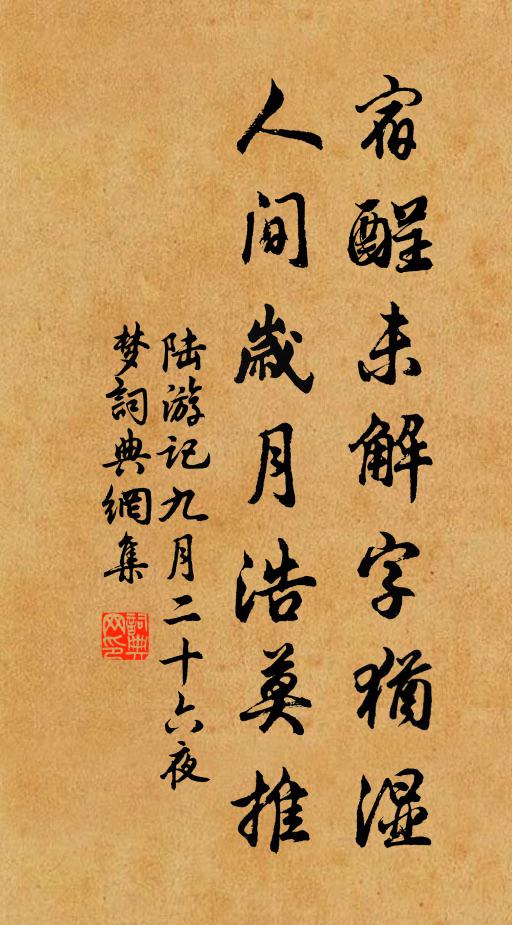 宿酲未解字犹湿
人间歳月浩莫推
陆游记九月二十六夜
梦詞典網集
詞典网印